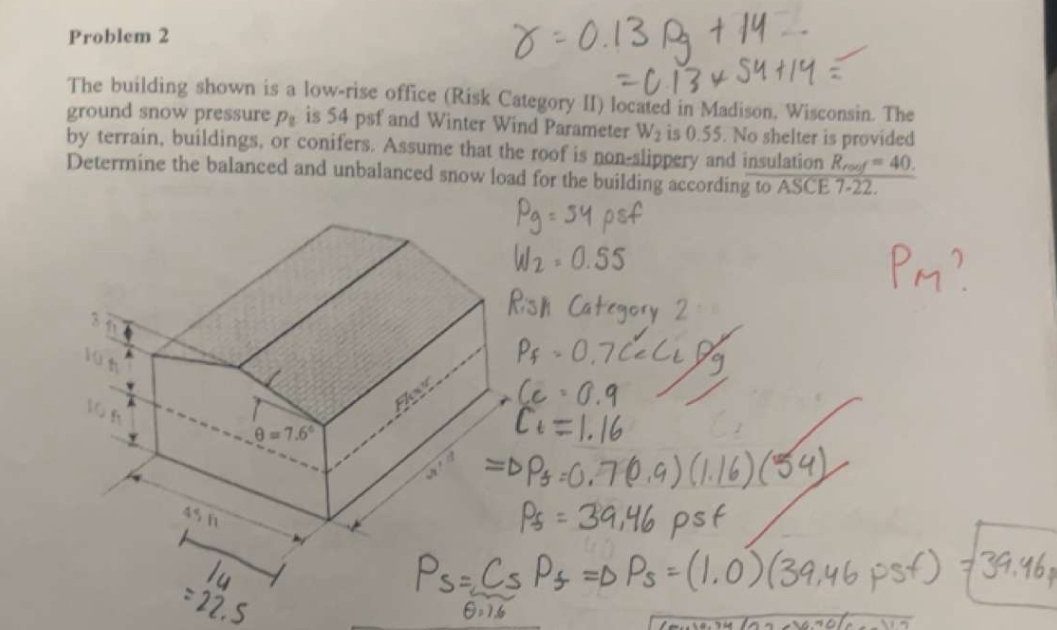 Problem 2
γ = 0.13 Pg + 14
= 0.13 x 54 + 14 =
The building shown is a low-rise office (Risk Category II) located in Madison, Wisconsin. The
ground snow pressure pg is 54 psf and Winter Wind Parameter W2 is 0.55. No shelter is provided
by terrain, buildings, or conifers. Assume that the roof is non-slippery and insulation Rroof = 40.
Determine the balanced and unbalanced snow load for the building according to ASCE 7-22.
Pg = 54 psf
W2 = 0.55
PM?
Risk Category 2
Pf = 0.7 Ce Ct Pg
Ce = 0.9
Ct = 1.16
=> Pf = 0.7(0.9)(1.16)(54)
Pf = 39,46 psf
Ps = Cs Pf => Ps = (1.0)(39,46 psf) = 39.46
θ=7.6
3 ft
10 ft
10 ft
θ = 7.6°
Floor
45 ft
lu
= 22.5